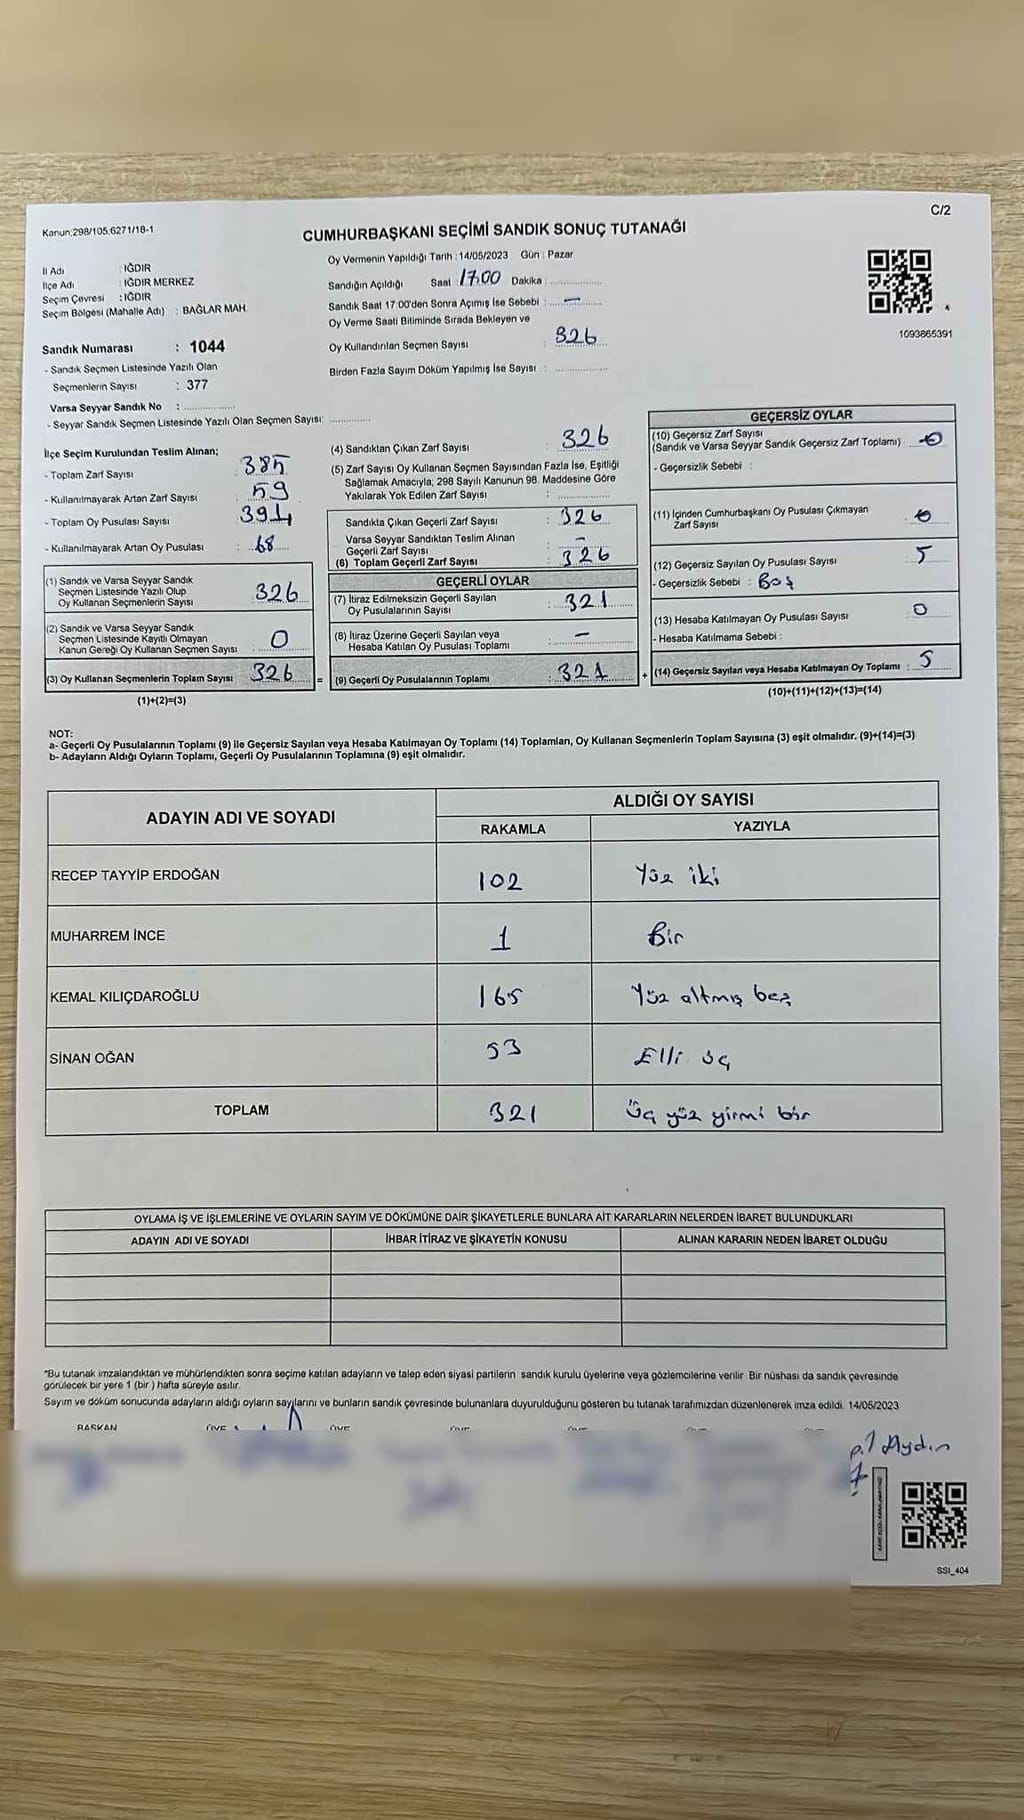 C/2
Kanun:298/105,6271/18-1
CUMHURBAŞKANI SEÇİMİ SANDIK SONUÇ TUTANAĞI
İl Adı : IĞDIR
İlçe Adı : IĞDIR MERKEZ
Seçim Çevresi : IĞDIR
Seçim Bölgesi (Mahalle Adı) : BAĞLAR MAH.
Sandık Numarası : 1044
- Sandık Seçmen Listesinde Yazılı Olan
Seçmenlerin Sayısı : 377
Varsa Seyyar Sandık No :
- Seyyar Sandık Seçmen Listesinde Yazılı Olan Seçmen Sayısı:
Oy Vermenin Yapıldığı Tarih : 14/05/2023 Gün : Pazar
Sandığın Açıldığı Saat : 17.00 Dakika :
Sandık Saat 17.00'den Sonra Açımış İse Sebebi : —
Oy Verme Saati Bitiminde Sırada Bekleyen ve
Oy Kullandırılan Seçmen Sayısı : 326
Birden Fazla Sayım Döküm Yapılmış İse Sayısı :
1093865391
İlçe Seçim Kurulundan Teslim Alınan;
- Toplam Zarf Sayısı : 385
- Kullanılmayarak Artan Zarf Sayısı : 59
- Toplam Oy Pusulası Sayısı : 394
- Kullanılmayarak Artan Oy Pusulası : 68
(1) Sandık ve Varsa Seyyar Sandık
Seçmen Listesinde Yazılı Olup
Oy Kullanan Seçmenlerin Sayısı : 326
(2) Sandık ve Varsa Seyyar Sandık
Seçmen Listesinde Kayıtlı Olmayan
Kanun Gereği Oy Kullanan Seçmen Sayısı : 0
(3) Oy Kullanan Seçmenlerin Toplam Sayısı : 326 =
(1)+(2)=(3)
(4) Sandıktan Çıkan Zarf Sayısı : 326
(5) Zarf Sayısı Oy Kullanan Seçmen Sayısından Fazla İse, Eşitliği
Sağlamak Amacıyla; 298 Sayılı Kanunun 98. Maddesine Göre
Yakılarak Yok Edilen Zarf Sayısı :
Sandıkta Çıkan Geçerli Zarf Sayısı : 326
Varsa Seyyar Sandıktan Teslim Alınan
Geçerli Zarf Sayısı : —
(6) Toplam Geçerli Zarf Sayısı : 326
GEÇERLİ OYLAR
(7) İtiraz Edilmeksizin Geçerli Sayılan
Oy Pusulalarının Sayısı : 321
(8) İtiraz Üzerine Geçerli Sayılan veya
Hesaba Katılan Oy Pusulası Toplamı : —
(9) Geçerli Oy Pusulalarının Toplamı : 321 +
GEÇERSİZ OYLAR
(10) Geçersiz Zarf Sayısı
(Sandık ve Varsa Seyyar Sandık Geçersiz Zarf Toplamı) : 0
- Geçersizlik Sebebi :
(11) İçinden Cumhurbaşkanı Oy Pusulası Çıkmayan
Zarf Sayısı : 0
(12) Geçersiz Sayılan Oy Pusulası Sayısı : 5
- Geçersizlik Sebebi : Boş
(13) Hesaba Katılmayan Oy Pusulası Sayısı : 0
- Hesaba Katılmama Sebebi :
(14) Geçersiz Sayılan veya Hesaba Katılmayan Oy Toplamı : 5
(10)+(11)+(12)+(13)=(14)
NOT:
a- Geçerli Oy Pusulalarının Toplamı (9) ile Geçersiz Sayılan veya Hesaba Katılmayan Oy Toplamı (14) Toplamları, Oy Kullanan Seçmenlerin Toplam Sayısına (3) eşit olmalıdır. (9)+(14)=(3)
b- Adayların Aldığı Oyların Toplamı, Geçerli Oy Pusulalarının Toplamına (9) eşit olmalıdır.
ADAYIN ADI VE SOYADI ALDIĞI OY SAYISI
RAKAMLA YAZIYLA
RECEP TAYYİP ERDOĞAN 102 Yüz iki
MUHARREM İNCE 1 Bir
KEMAL KILIÇDAROĞLU 165 Yüz altmış beş
SİNAN OĞAN 53 Elli üç
TOPLAM 321 Üç yüz yirmi bir
OYLAMA İŞ VE İŞLEMLERİNE VE OYLARIN SAYIM VE DÖKÜMÜNE DAİR ŞİKAYETLERLE BUNLARA AİT KARARLARIN NELERDEN İBARET BULUNDUKLARI
ADAYIN ADI VE SOYADI İHBAR İTİRAZ VE ŞİKAYETİN KONUSU ALINAN KARARIN NEDEN İBARET OLDUĞU
*Bu tutanak imzalandıktan ve mühürlendikten sonra seçime katılan adayların ve talep eden siyasi partilerin sandık kurulu üyelerine veya gözlemcilerine verilir. Bir nüshası da sandık çevresinde
görülecek bir yere 1 (bir ) hafta süreyle asılır.
Sayım ve döküm sonucunda adayların aldığı oyların sayılarını ve bunların sandık çevresinde bulunanlara duyurulduğunu gösteren bu tutanak tarafımızdan düzenlenerek imza edildi. 14/05/2023
BAŞKAN ÜYE ÜYE ÜYE ÜYE ÜYE ÜYE
Aydın
SSI_404